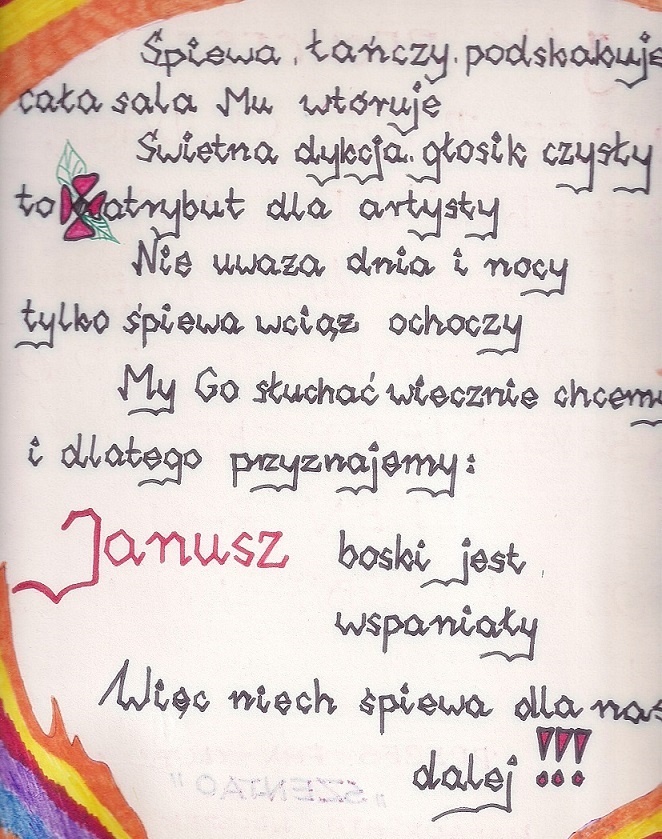 Śpiewa, tańczy, podskakuje
cała sala Mu wtóruje
Świetna dykcja, głosik czysty
to atrybut dla artysty
Nie uważa dnia i nocy
tylko śpiewa wciąż ochoczy
My Go słuchać wiecznie chcemy
i dlatego przyznajemy:
Janusz boski jest
wspaniały
Więc niech śpiewa dla nas
dalej !!!